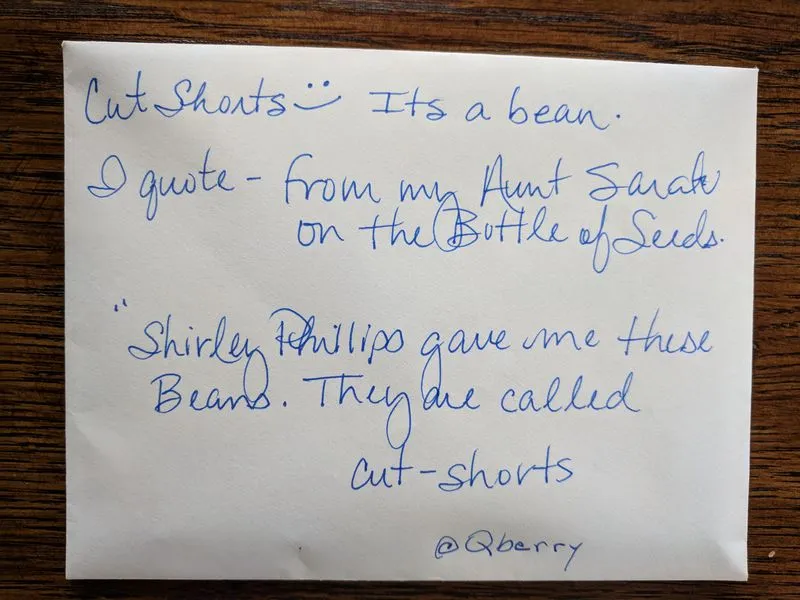 Cut Shorts Its a bean.
I quote - from my Aunt Sarah
on the Bottle of Seeds.
"Shirley Phillips gave me these
Beans. They are called
cut-shorts
@Qberry